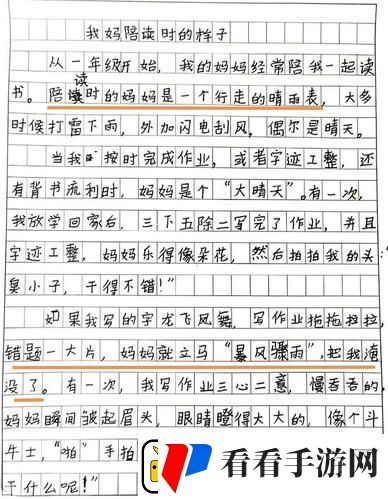 我妈陪读时的样子
从一年级开始，我的妈妈经常陪我一起读
书。陪读时的妈妈是一个行走的晴雨表，大多
读
时候打雷下雨，外加闪电刮风，偶尔是晴天。
当我时按时完成作业，或者字迹工整，还
有背书流利时，妈妈是个“大晴天”。有一次，
我放学回家后，三下五除二写完了作业，并且
字迹工整，妈妈乐得像朵花，然后拍拍我的头：
臭小子，干得不错！”
如果我写的字龙飞凤舞，写作业拖拖拉拉，
错题一大片，妈妈就立马“暴风骤雨”，把我淹
没了。有一次，我写作业三心二意，慢吞吞的，
妈妈瞬间皱起眉头，眼睛瞪得大大的，像个斗
牛士，“啪”手拍
干什么呢！”
看看手游网